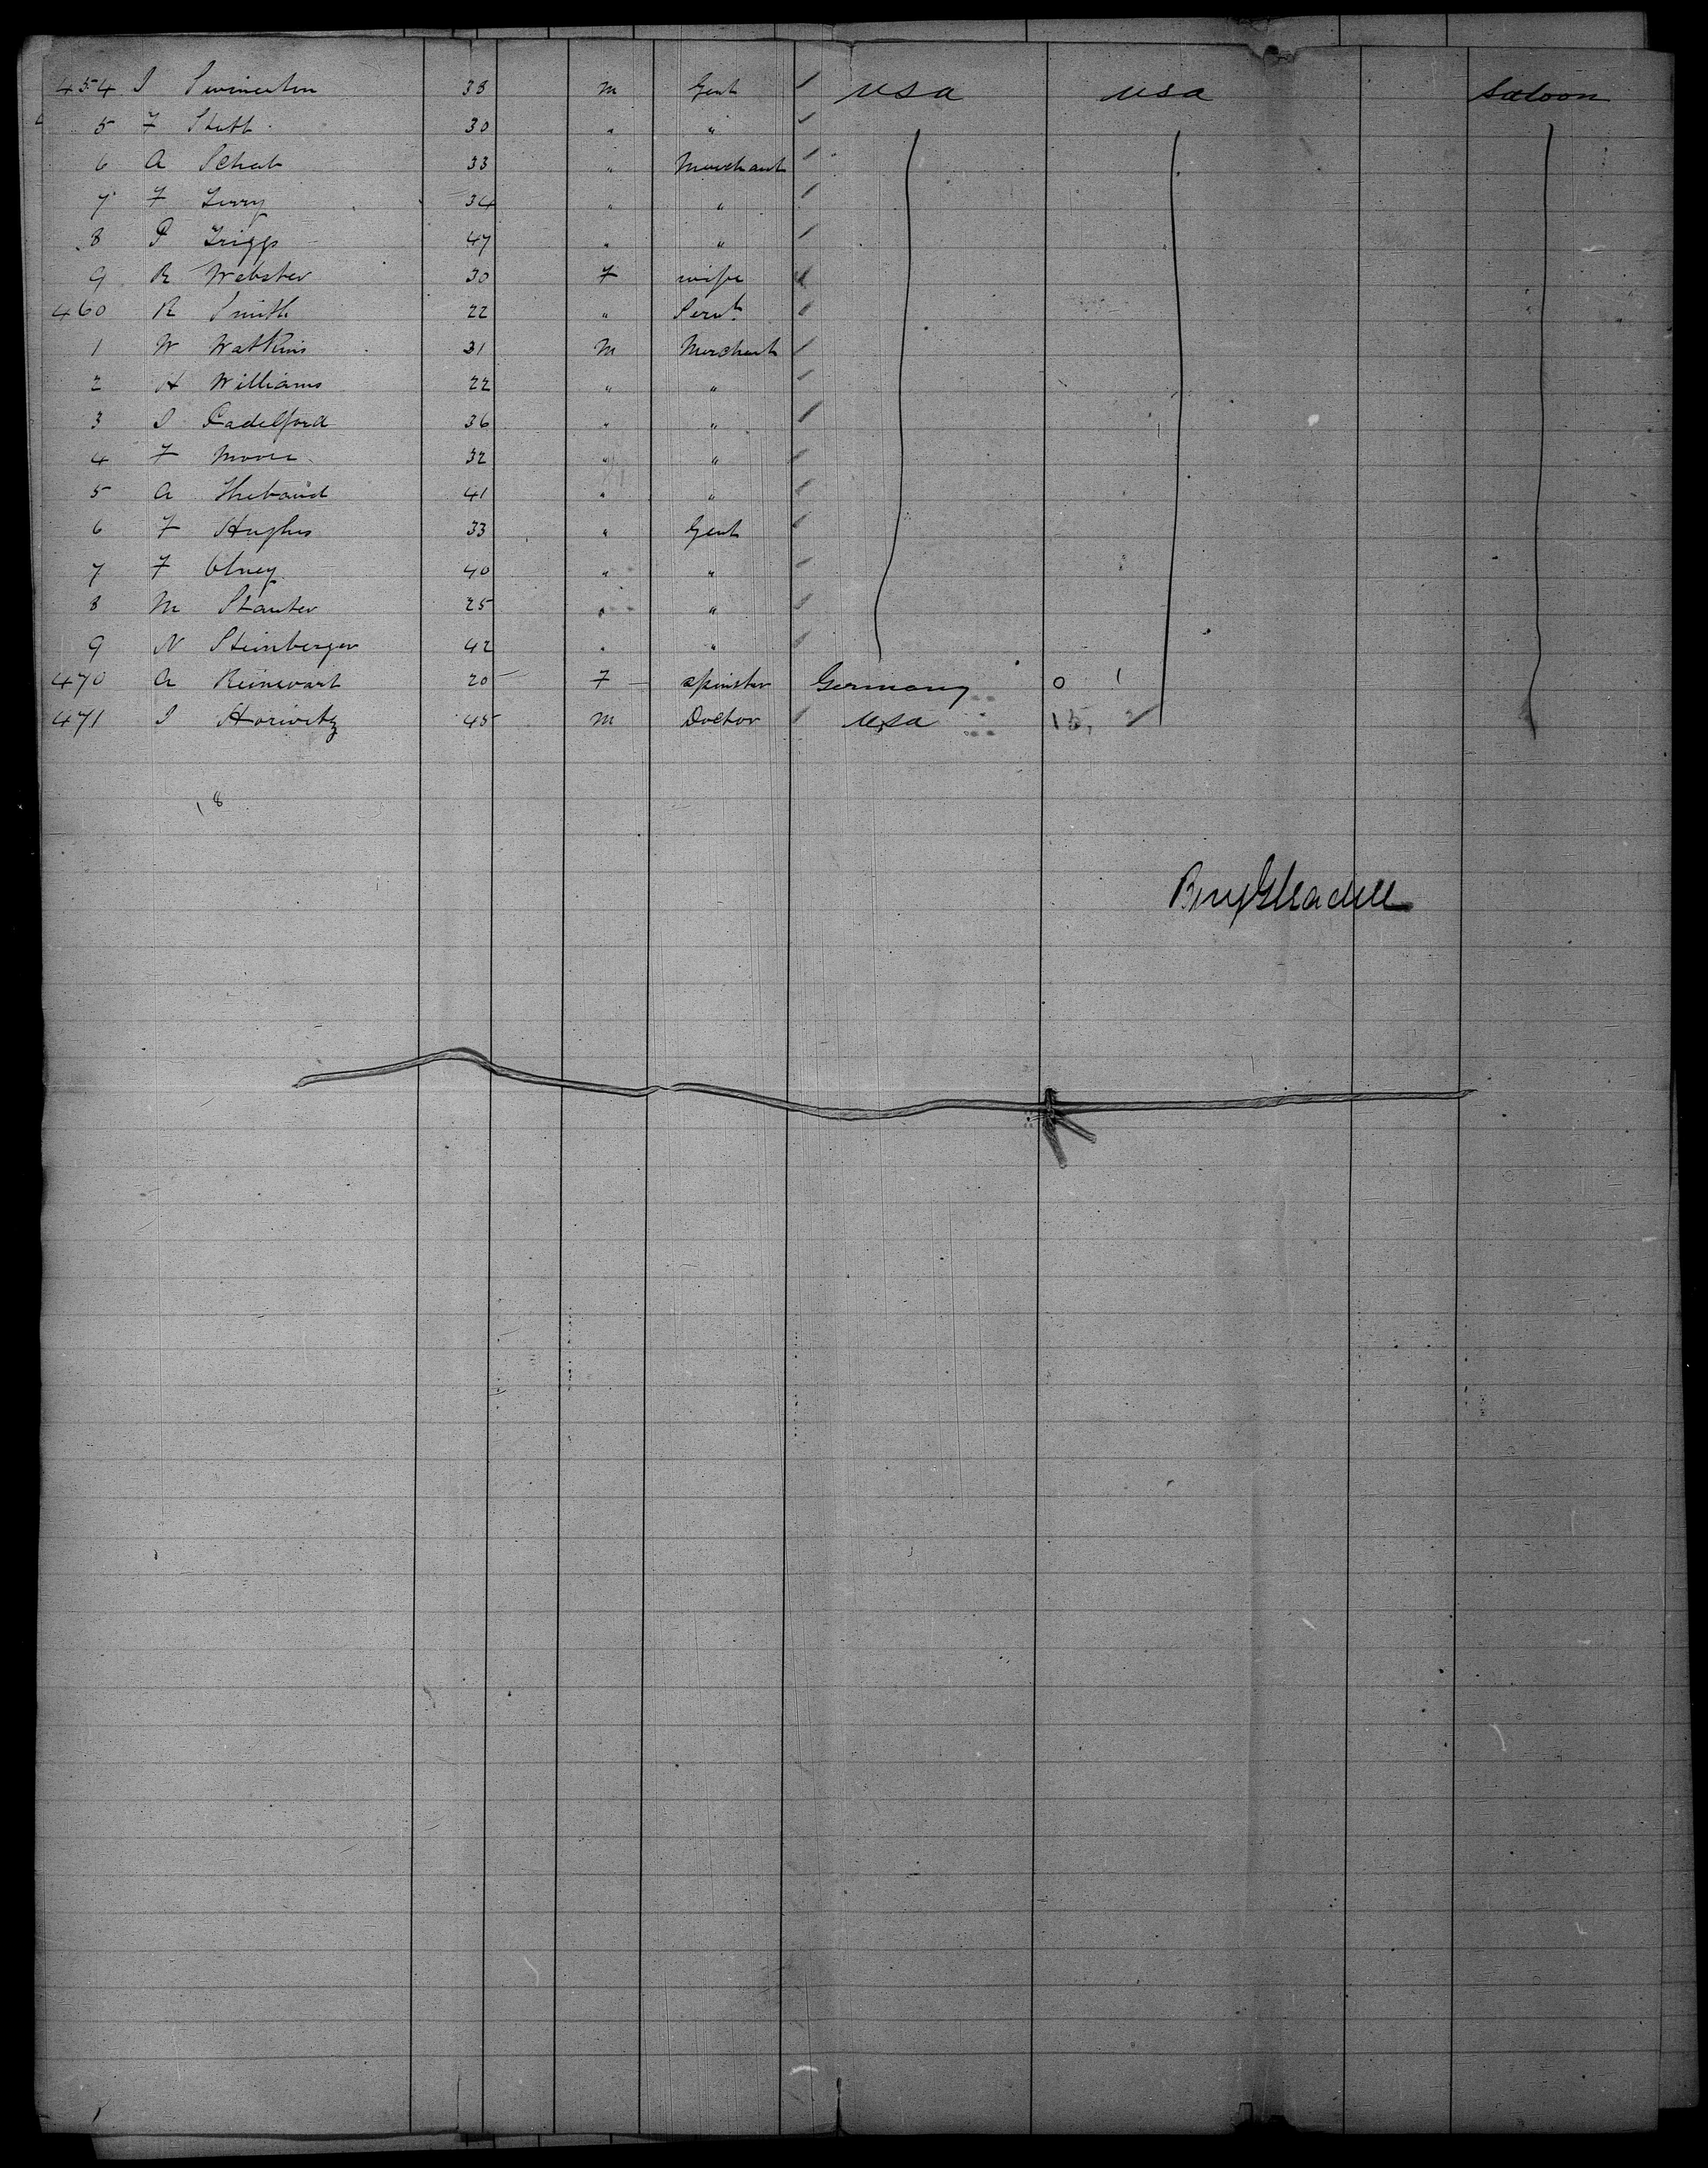 454 J Swinerton 38 m Gent / USA USA Saloon
5 F Stett 30 " " /
6 A Schab 33 " Merchant /
7 F Terry 34 " " /
8 P Griggs 47 " " /
9 R Webster 30 F wife /
460 R Smith 22 " Servt /
1 W Watkins 31 M Merchant /
2 H Williams 22 " " /
3 S Padelford 36 " " /
4 F Moore 32 " " /
5 A Thebaud 41 " " /
6 F Hughes 33 " Gent /
7 F Olney 40 " " /
8 M Stanter 25 " " /
9 N Steinberger 42 " " /
470 A 20 F spinster Germany 0 1
471 J Horwitz 45 m Doctor / USA 15, 2
18
Benj Gleadell